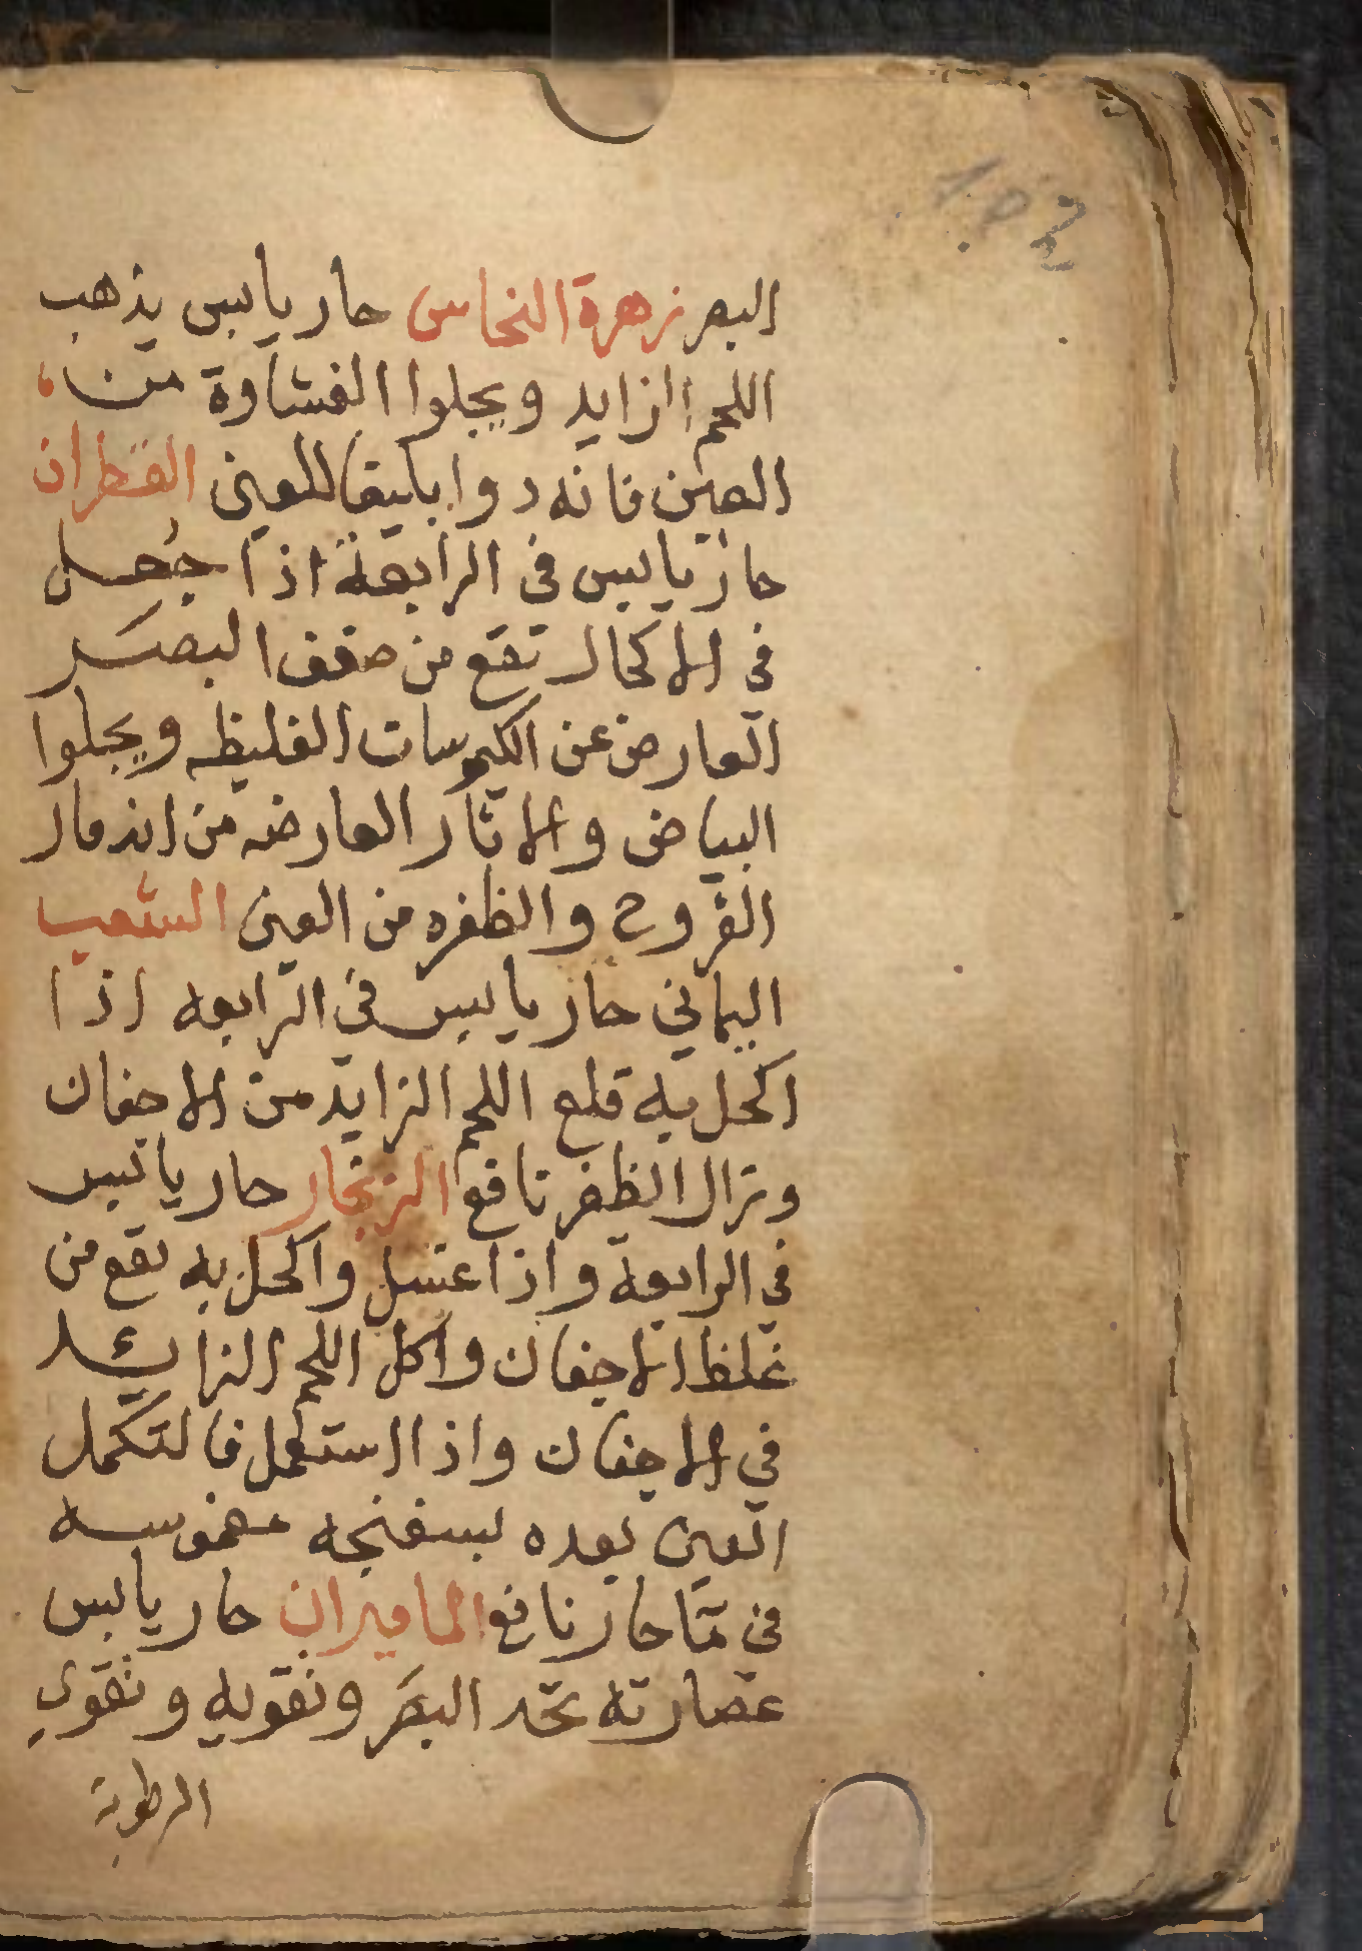 البصر زهرة النحاس حار يابس يذهب
اللحم الزايد ويجلوا الغشاوة من
العين فانه دوا يليق للعين القطران
حار يابس في الرابعة اذا جعل
في الاكحال تقع من ضعف البصر
العارض عن الكيموسات الغليظه ويجلوا
البياض والاثار العارضه من اندمال
القروح والظفره من العين الشعب
اليماني حار يابس في الرابعه اذا
اكحل به قلع اللحم الزايد من الاجفان
وتزال الظفر نافع الزنجار حار يابس
في الرابعة واذا غسل واكحل به نفع من
غلظ الاجفان واكل اللحم الزائد
في الاجفان واذا استعمل فالتكمل
العين بعده بسفنجه مغموسه
في مآ حار نافع الماميران حار يابس
عصارته تحد البصر ونقويه ونقوي
الرطوبة